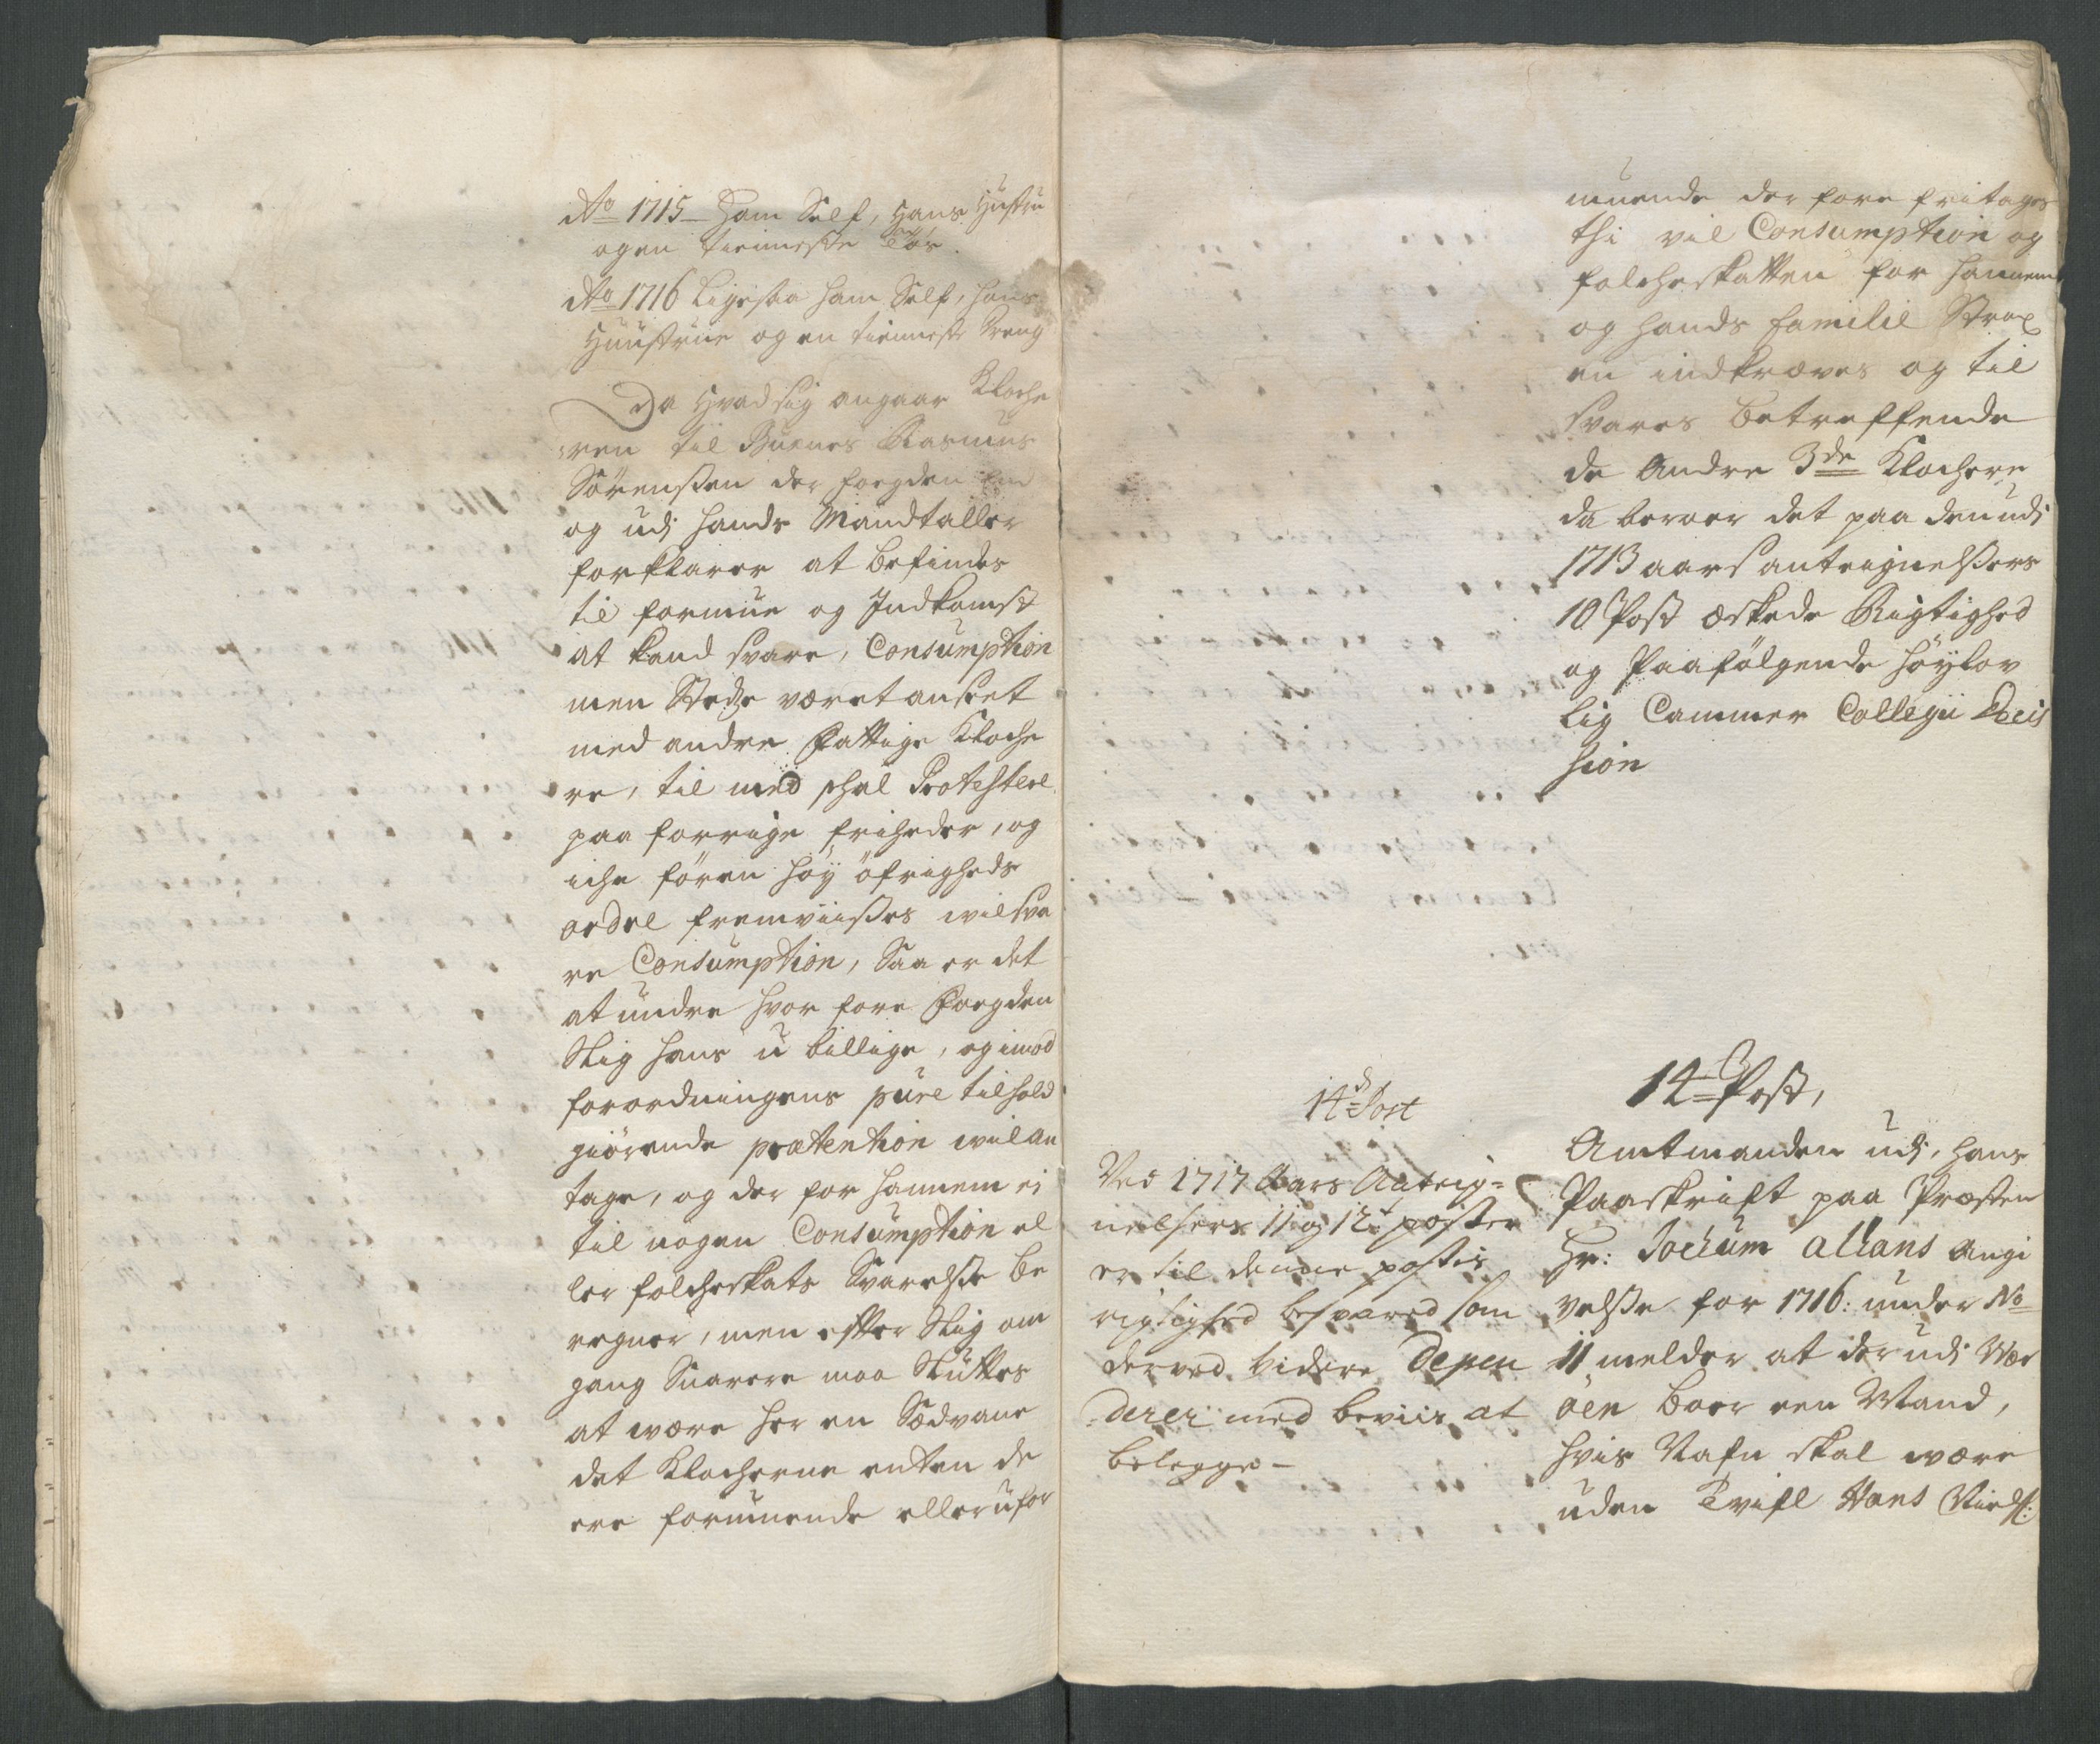 Ao 1715 – Ham Self, Hans Hustru
og en tieniste Tös
Ao 1716 Ligesaa ham Self, hans
Huustrue og en tieniste dreng
Da hvad sig angaar Kloche
ren til Buxnes Rasmus
Sörensen der fogden
og udj hands Mandtaller
forklarer at befindes
til formue og Indkomst
at kand svare, Consumption
men Stedze været anseet
med andre Fattige Kloche
re, til med schal Protestere
paa forrige friheder, og
iche fören höy öfrigheds
ordre fremviises wil sva
re Consumption, Saa er det
at undre hvor fore Fogden
Slig hans u billige, og imod
forordningens pure tilhold
giörende prætention wil an
tage, og der for hannem ei
til nogen Consumption el
ler folcheskats Svarelse be
regner, men efter Slig om
gang Snarere maa Sluttes
at være her en Sædvane
det Klocherne enten de
ere formuende eller ufor
muende der fore fritages
thi vil Consumption og
folcheskatten for hannem
og hands familie Strax
en indkræves og til
svares betreffende
de Andre 3de Klochere
da beroer det paa den udi
1713 aars antegnelsers
10 Post æskede Rigtighed
og Paafölgende höylov
lig Cammer Collegii Decis
sion
14d Post
Ved 1717 Aars Anteig=
nelsers 11 og 12t poster
er til denne postis
rigtighed besvared som
derved videre depen
derer med beviis at
belegge –
14 Post,
Amtmanden udj, hans
Paaskrift paa Præsten
Hr: Jochum Allans Angi
velse for 1716: under No
11 melder at der udi Wær
öen boer een Mand,
hvis Nafn skal være
uden Tvifl Hans Niels: